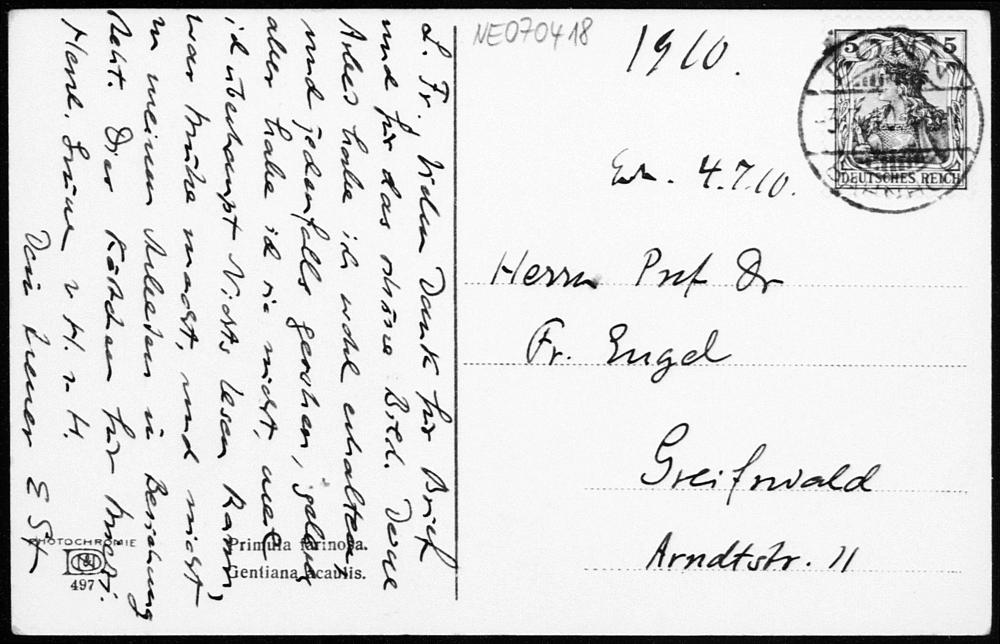 NE070418
1910.
Erh. 4.7.10.
5 5
DEUTSCHES REICH
BONN
Herrn Prof Dr
Fr. Engel
Greifswald
Arndtstr. 11
L. Fr. Vielen Dank für Brief
und für das schöne Bild. Deine
Arbeit habe ich wohl erhalten
und jedenfalls gesehen, gelesen
aber habe ich sie nicht, weil
ich überhaupt Nichts lesen kann,
was Mühe macht, und nicht
zu meinen Arbeiten in Beziehung
steht. Dies Kärtchen für
Herzl. Grüsse v. H. z. H.
Dein treuer E St
PHOTOCHROMIE
497
Primula farinosa.
Gentiana acaulis.